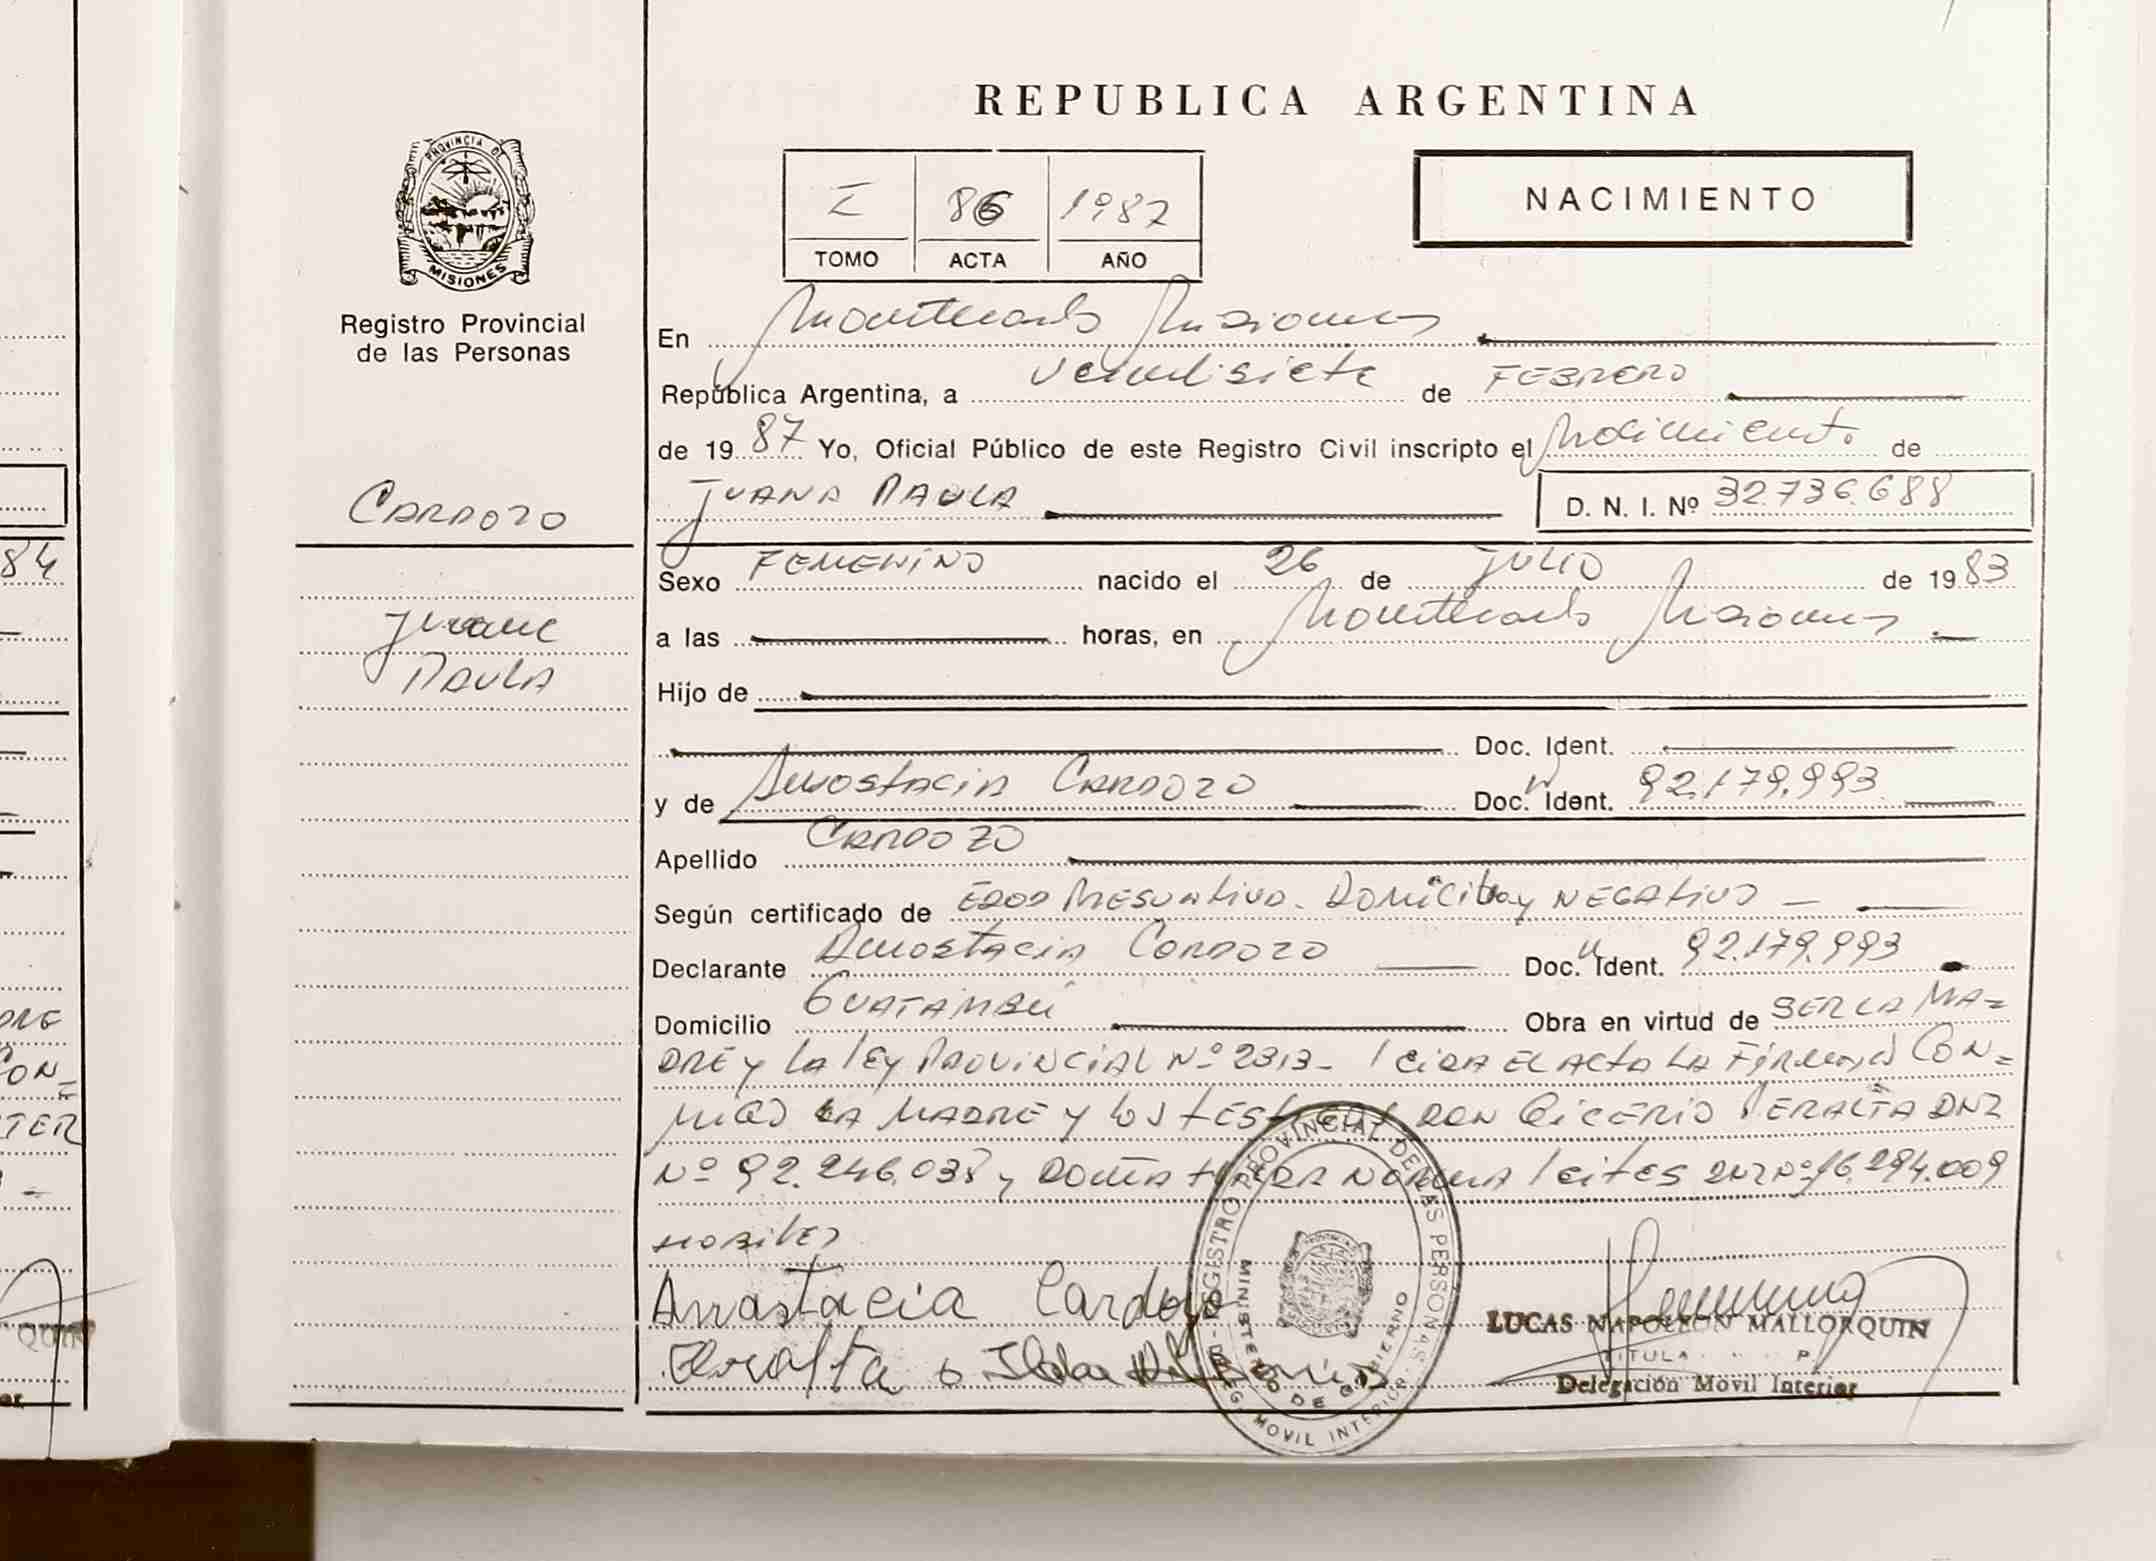 REPUBLICA ARGENTINA
PROVINCIA DE
MISIONES
Registro Provincial
de las Personas
I 86 1987
TOMO ACTA AÑO
NACIMIENTO
En Montecarlo Misiones
República Argentina, a veintisiete de FEBRERO
de 1987 Yo, Oficial Público de este Registro Civil inscripto el Nacimiento de
CARDOZO
JUANA PAULA
D. N. I. Nº 32.736.688
Sexo FEMENINO nacido el 26 de JULIO de 1983
Juana
PAULA
a las horas, en Montecarlo Misiones
Hijo de
Doc. Ident.
y de Anastacia CARDOZO Doc. Ident. 92.179.993
Apellido CARDOZO
Según certificado de EDAD PRESUNTIVA. DOMICILIO y NEGATIVO
Declarante Anastacia CARDOZO Doc. Ident. 92.179.993
Domicilio GUATAMBU Obra en virtud de SER LA MA-
DRE y LA LEY PROVINCIAL Nº 2313- Leida EL Acta LA Firman CON-
MIGO LA MADRE y LOS TESTIGOS DON PERALTA DNI
Nº 92.246.038 y DOÑA NORMA Leites DNI Nº 16.294.009
HABILES
Anastacia Cardozo
Peralta
REGISTRO PROVINCIAL DE LAS PERSONAS
MINISTERIO DE GOBIERNO
DELEG. MOVIL INTERIOR
LUCAS NAPOLEON MALLORQUIN
TITULAR
Delegación Móvil Interior
84